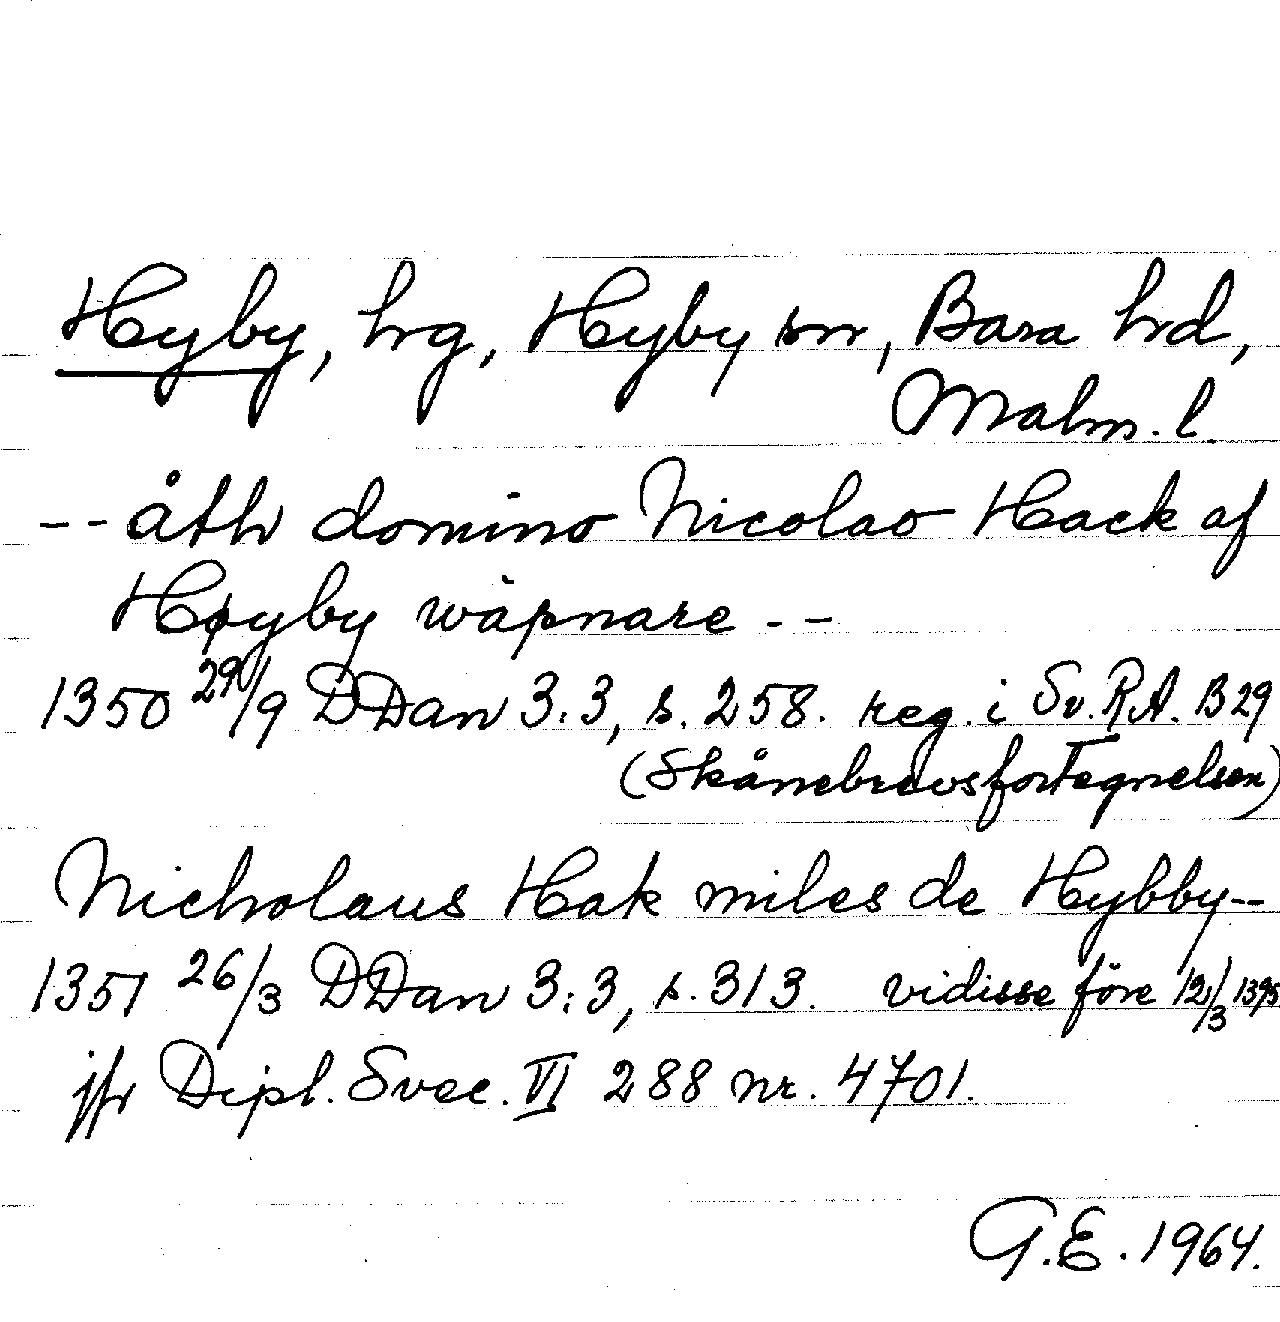 Hyby, hrg, Hyby sn, Bara hrd,
Malm. l.
-- åth domino Nicolao Hack af
Høyby wäpnare --
1350 29/9 DDan 3:3, s. 258. reg. i Sv. R.A. B 29
(Skånebrevsfortegnelsen)
Nicholaus Hak miles de Hybby --
1351 26/3 DDan 3:3, s. 313. vidisse före 12/3 1395
jfr Dipl. Svec. VI 288 nr. 4701.
G.E. 1964.